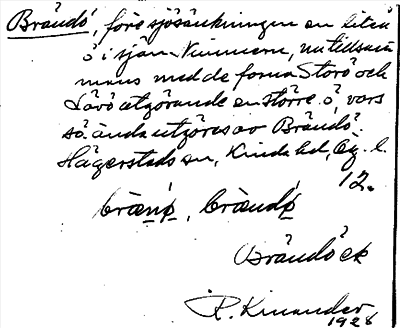 Brändö, före sjösänkningen en liten
ö i sjön Nimmern, nu tillsam-
mans med de forna Storö och
Lövö utgörande en större ö, vars
sö. ända utgöres av Brändö.
Hägerstads sn, Kinda hd, Ög. l.
12.
brænö, brændö
Brändö ek
R. Kinander
1928